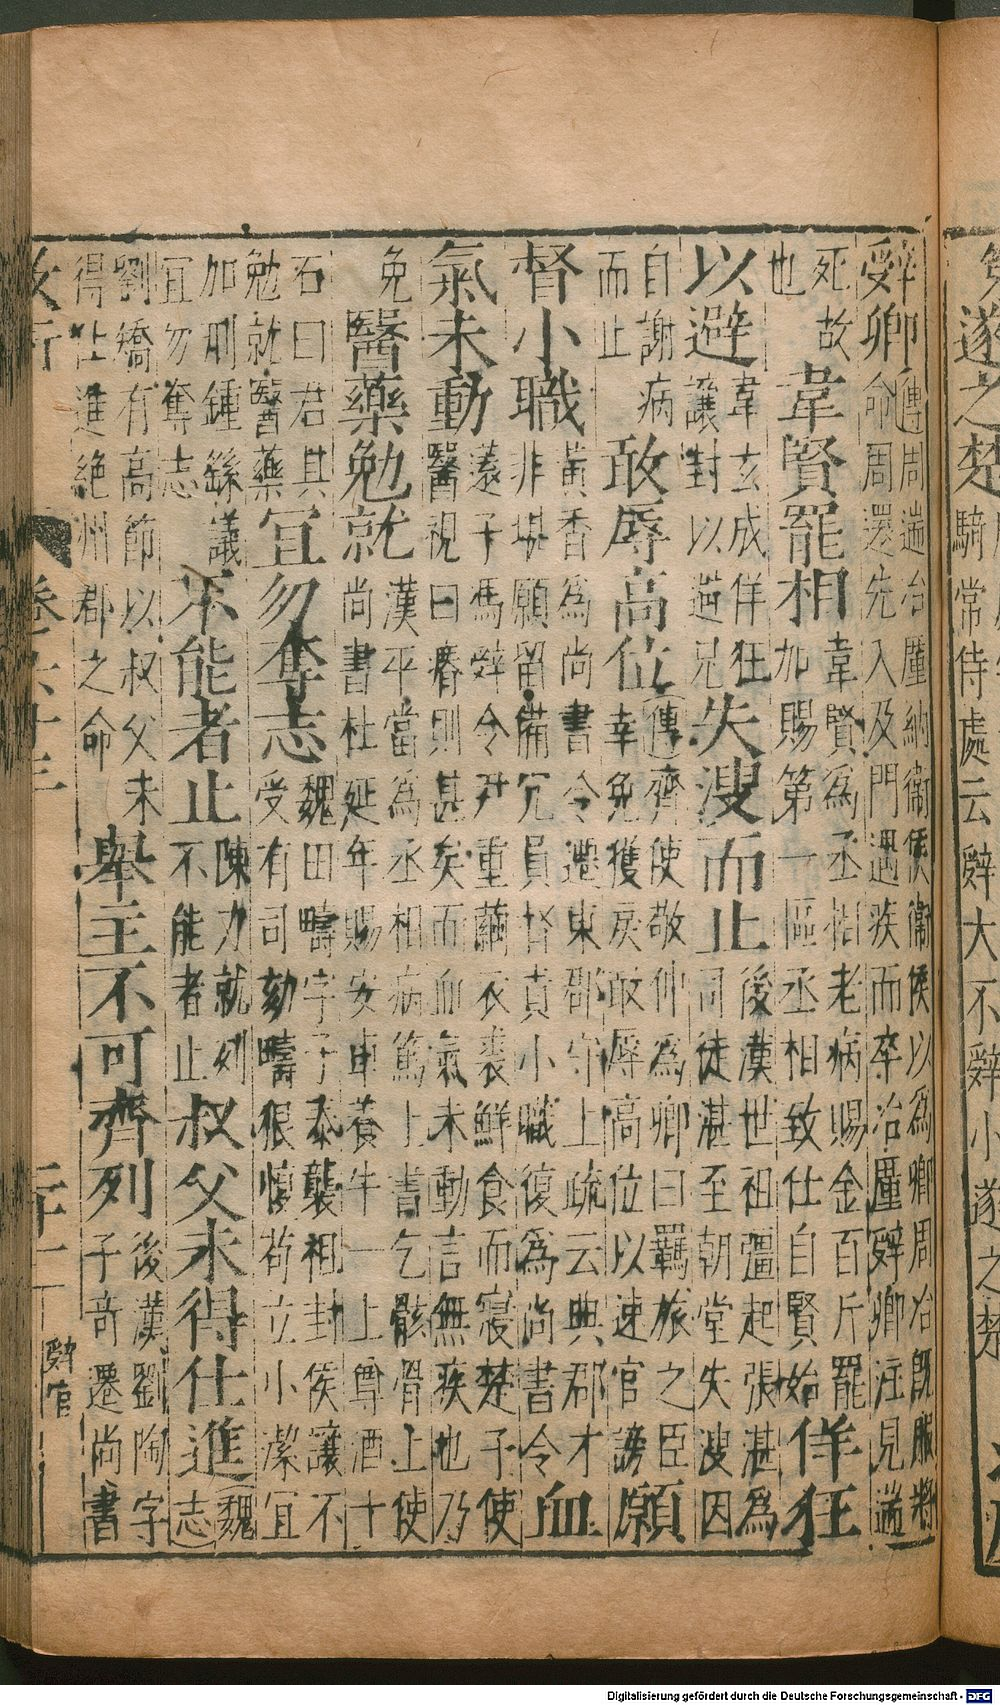 免遂之楚
騎常侍處云辭大不辭小遂之楚
辤卿
傳周遄台壥納衛侯衛侯以為卿周冶既服將
命周還先入及門遇疾而卒冶壥辤卿注見遄
死故
也
韋賢罷相
韋賢為丞相老病賜金百斤罷
加賜第一區丞相致仕自賢始
佯狂
以避
韋玄成佯狂
讓封以避兄
失溲而止
後漢世祖彊起張湛為
司徒湛至朝堂失溲因
自謝病
而止
敢辱高位
傳齊使敬仲為卿曰羈旅之臣
幸免獲戾敢辱高位以速官謗
願
督小職
黃香為尚書令遷東郡守上疏云典郡才
非堪願留備冗員督責小職復為尚書令
血
氣未動
薳子馮辤令尹重繭衣裘鮮食而寢楚子使
醫視曰瘠則甚矣而血氣未動言無疾也乃
免
醫藥勉就
漢平當為丞相病篤上書乞骸骨上使
尚書杜延年賜安車養牛一上尊酒十
石曰君其
勉就醫藥
宜勿奪志
魏田疇字子泰襲祖封侯讓不
受有司劾疇狠愎苟立小潔宜
加刑鍾繇議
宜勿奪志
不能者止
陳力就列
不能者止
叔父未得仕進
魏
志
劉矯有高節以叔父未
得仕進絕州郡之命
舉主不可齊列
後漢劉陶字
子奇遷尚書
辤官
Digitalisierung gefördert durch die Deutsche Forschungsgemeinschaft - DFG